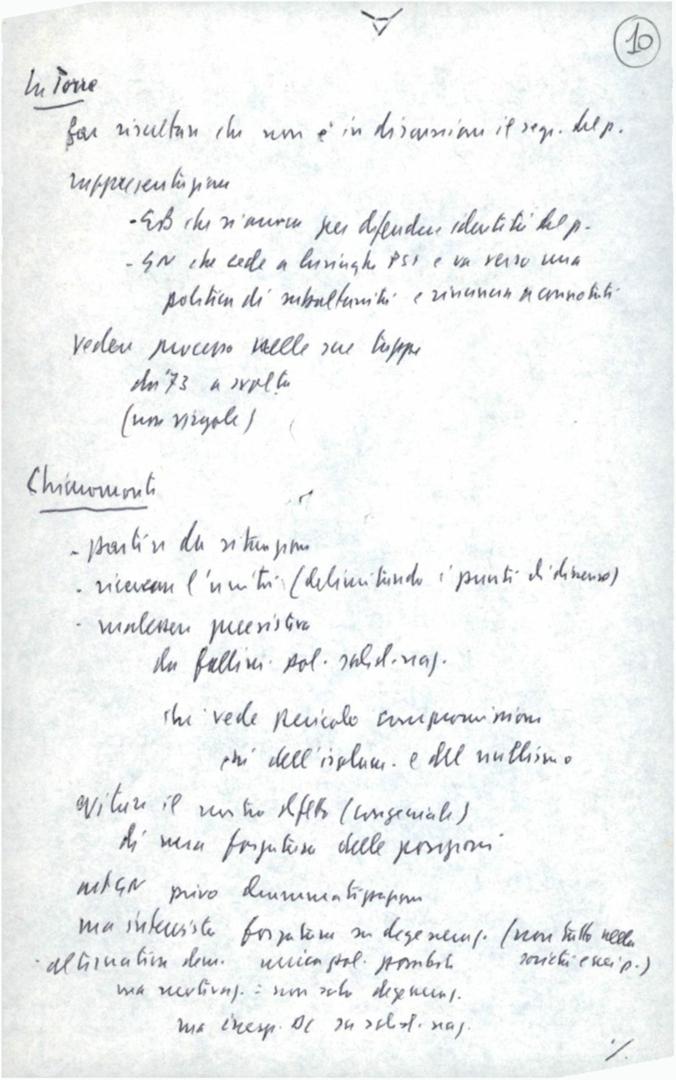 10
La Torre
far risultare che non è in discussione il segr. del p.
rappresentazione
- EB che si muove per difendere identità del p.
- GN che cede a lusinghe PSI e va verso una
politica di subalternità e rinuncia a connotati
vedere processo nelle sue tappe
da '73 a svolta
(non virgole)
Chiaromonte
- partire da situazione
- ricercare l'unità (delimitando i punti di dissenso)
- malessere preesisteva
da fallim. pol. solid. naz.
chi vede pericolo compromissioni
chi dell'isolam. e del nullismo
evitare il nostro difetto (congeniale)
di una forzatura delle posizioni
art GN privo drammatizzazione
ma intervista forzatura su degeneraz. (non tutto nella
società e nei p.)
alternativa dem. unica pol. possibile
ma motivaz. = non solo degeneraz.
ma inesp. DC su solid. naz.
%